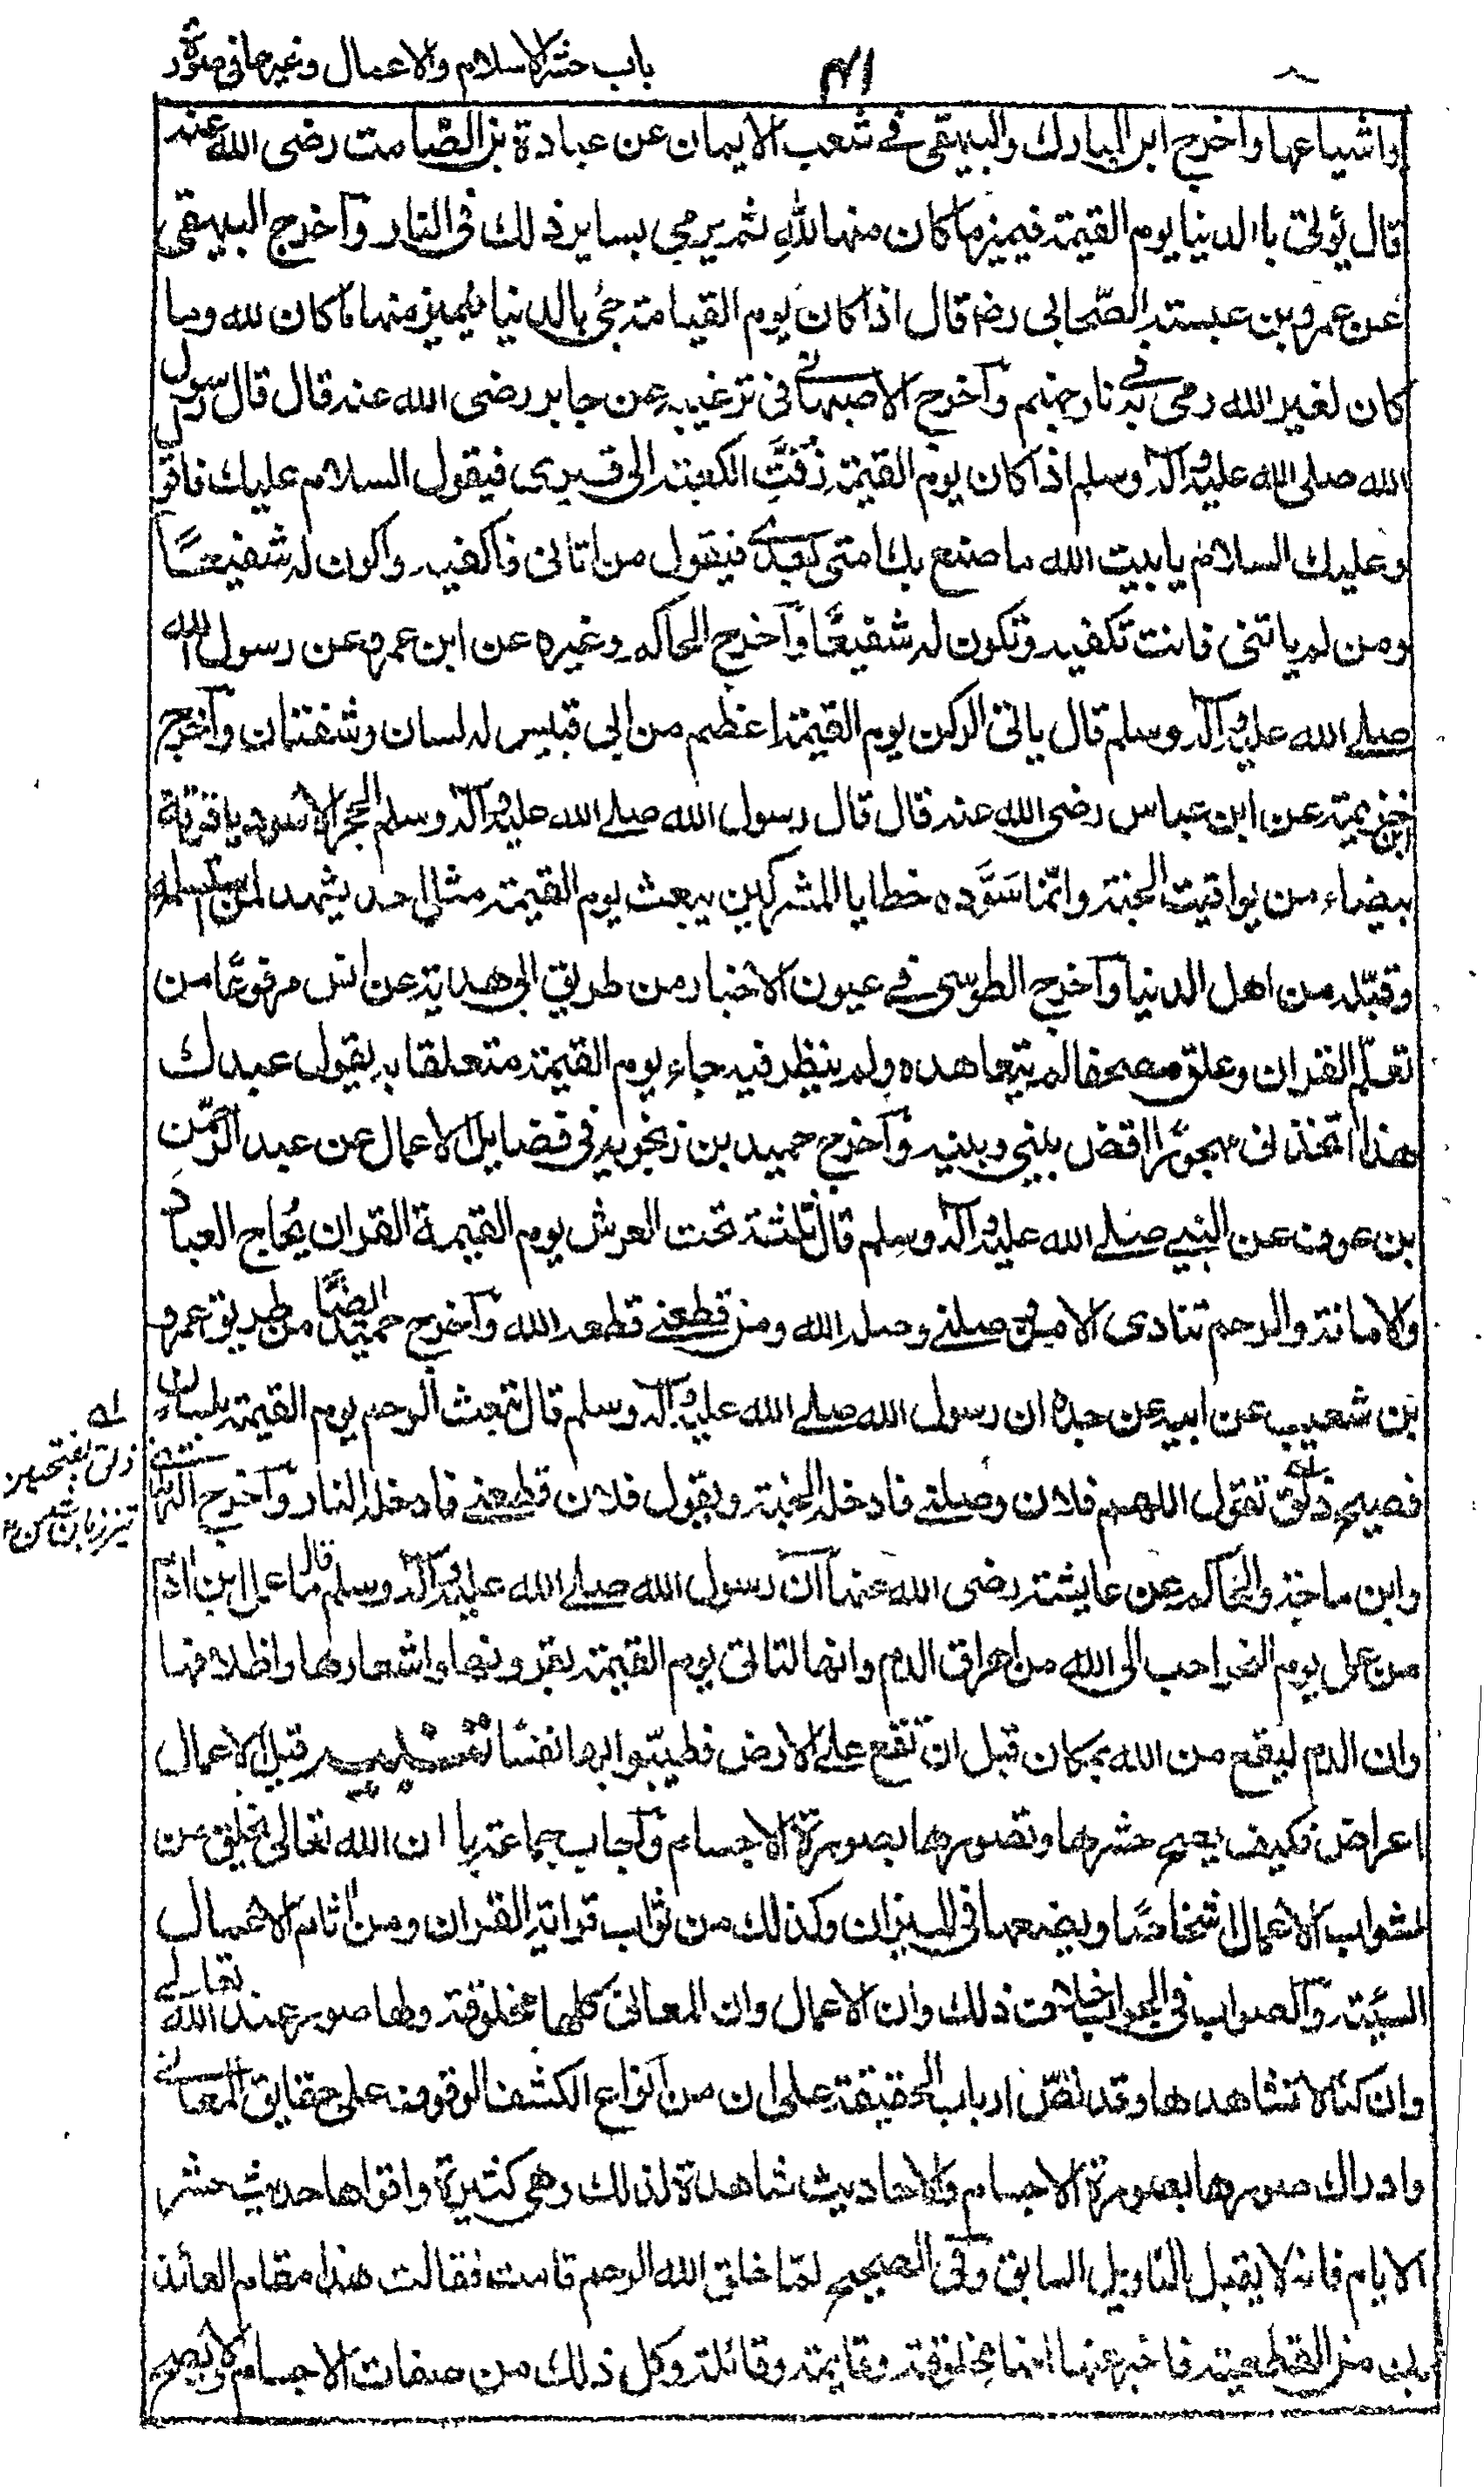 باب حشر الاسلام والاعمال وغيرها فى صورة
واشياعها واخرج ابن المبارك والبيهقى فے شعب الايمان عن عبادة بن الصّامت رضى الله عنه
قال يؤتى باالدنيا يوم القيمة فيميز ما كان منها للهِ ثم يرمى بساير ذلك فى النار وآخرج البيهقى
عن عمرو بن عبسته الصّحابى رضـ قال اذا كان يوم القيامة جئ بالدنيا فيميز منها ما كان لله وما
كان لغير الله رمى به فے نار جهنم وآخرج الاصبهانے فى ترغيبه عن جابر رضى الله عنه قال قال رسول
الله صلى الله عليه وآله وسلم اذا كان يوم القيمة زُفَّتِ الكعبة الى قبرى فيقول السلام عليك فاقو
وعليك السلام يا بيت الله ما صنع بك امتى بعدے فيقول من اتانى فاكفيه واكون له شفيعًا
ومن لم ياتنى فانت تكفيه وتكون له شفيعًا وآخرج الحاكم وغيره عن ابن عمرو عن رسول الله
صلے الله عليه وآله وسلم قال ياتى الركن يوم القيمة اعظم من ابى قبيس له لسان وشفتان وآخرج
ابن خزيمة عن ابن عباس رضى الله عنه قال قال رسول الله صلے الله عليه وآله وسلم الحجر الاسود ياقوتة
بيضاء من يواقيت الجنة وانّما سَوَّده خطايا المشركين يبعث يوم القيمة مثل احد يشهد لمن استلمه
وقبّله من اهل الدنيا وآخرج الطوسى فے عيون الاخبار من طريق ابى هدبة عن انس مرفوعًا من
تعلّم القران وعلق مصحفا لم يتعاهده ولم ينظر فيه جاء يوم القيمة متعلقا به يقول عبدك
هذا اتخذنى مهجورًا اقض بينى وبينه وآخرج حميد بن زنجويه فى فضايل الاعمال عن عبد الرحمٰن
بن عوف عن النبے صلے الله عليه وآله وسلم قال ثلثة تحت العرش يوم القيمة القران يُحاج العباد
والامانة والرحم تنادى الا من وصلنے وصله الله ومن قطعنے قطعه الله وآخرج حميد ايضًا من طريق عمرو
بن شعيب عن ابيه عن جده ان رسول الله صلے الله عليه وآله وسلم قال تبعث الرحم يوم القيمة بلسان
فصيح ذلق تقول اللهم فلان وصلنے فادخله الجنة ويقول فلان قطعنے فادخله النار وآخرج الترمذے
وابن ماجة والحاكم عن عايشة رضى الله عنها ان رسول الله صلے الله عليه وآله وسلم قال ما عمل ابن ادم
من عمل يوم النحر احب الى الله من اهراق الدم وانها لتاتى يوم القيمة بقرونها واشعارها واظلافها
وان الدم ليقع من الله بمكان قبل ان تقع علے الارض فطيبّوا بها نفسًا تنبيه قيل الاعمال
اعراض فكيف يصح حشرها وتصورها بصورة الاجسام وآجاب جماعة با ان الله تعالى يخلق من
ثواب الاعمال اشخاصًا ويضعها فى الميزان وكذلك من ثواب قراتة القران ومن اثام الاعمال
السيئة وآلصواب فى الجواب خلاف ذلك وان الاعمال وان المعانى كلها مخلوقة ولها صور عند الله تعالے
وان كنا لا نشاهدها وقد نصّ ارباب الحقيقة على ان من انواع الكشف الوقوف على حقايق المعانے
وادراك صورها بصورة الاجسام والاحاديث شاهدة لذلك وهى كثيرة واقواها حديث حشر
الايام فانه لا يقبل التاويل السابق وآفى الصحيح لمّا خلق الله الرحم قامت فقالت هذا مقام العائذ
بك من القطيعة فاخبر عنها انها مخلوقة وقايمة وقائلة وكل ذلك من صفات الاجسام ولا يصح
له
ذلق بفتحتين